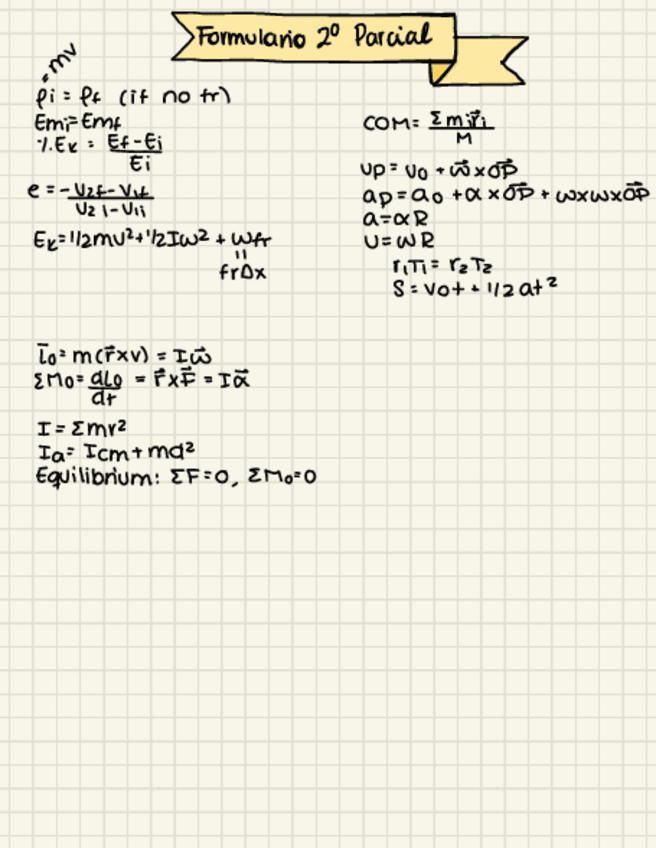 Formulario 2º Parcial
= mv
ρi = ρf (if no fr)
Emi = Emf
%Ek = Ef - Ei / Ei
e = - V2f - V1f / V2i - V1i
Ek = 1/2mv² + 1/2Iω² + Wfr
=
fr∆x
COM = Σmir⃗i / M
vp = vo + ω⃗ x OP⃗
ap = ao + α x OP⃗ + ωxωxOP⃗
a = αR
v = ωR
r1T1 = r2T2
S = Vot + 1/2at²
L̄o = m(r⃗xv) = Iω⃗
ΣMo = dLo / dt = r⃗xF⃗ = Iα⃗
I = Σmr²
Ia = Icm + md²
Equilibrium: ΣF=0, ΣMo=0